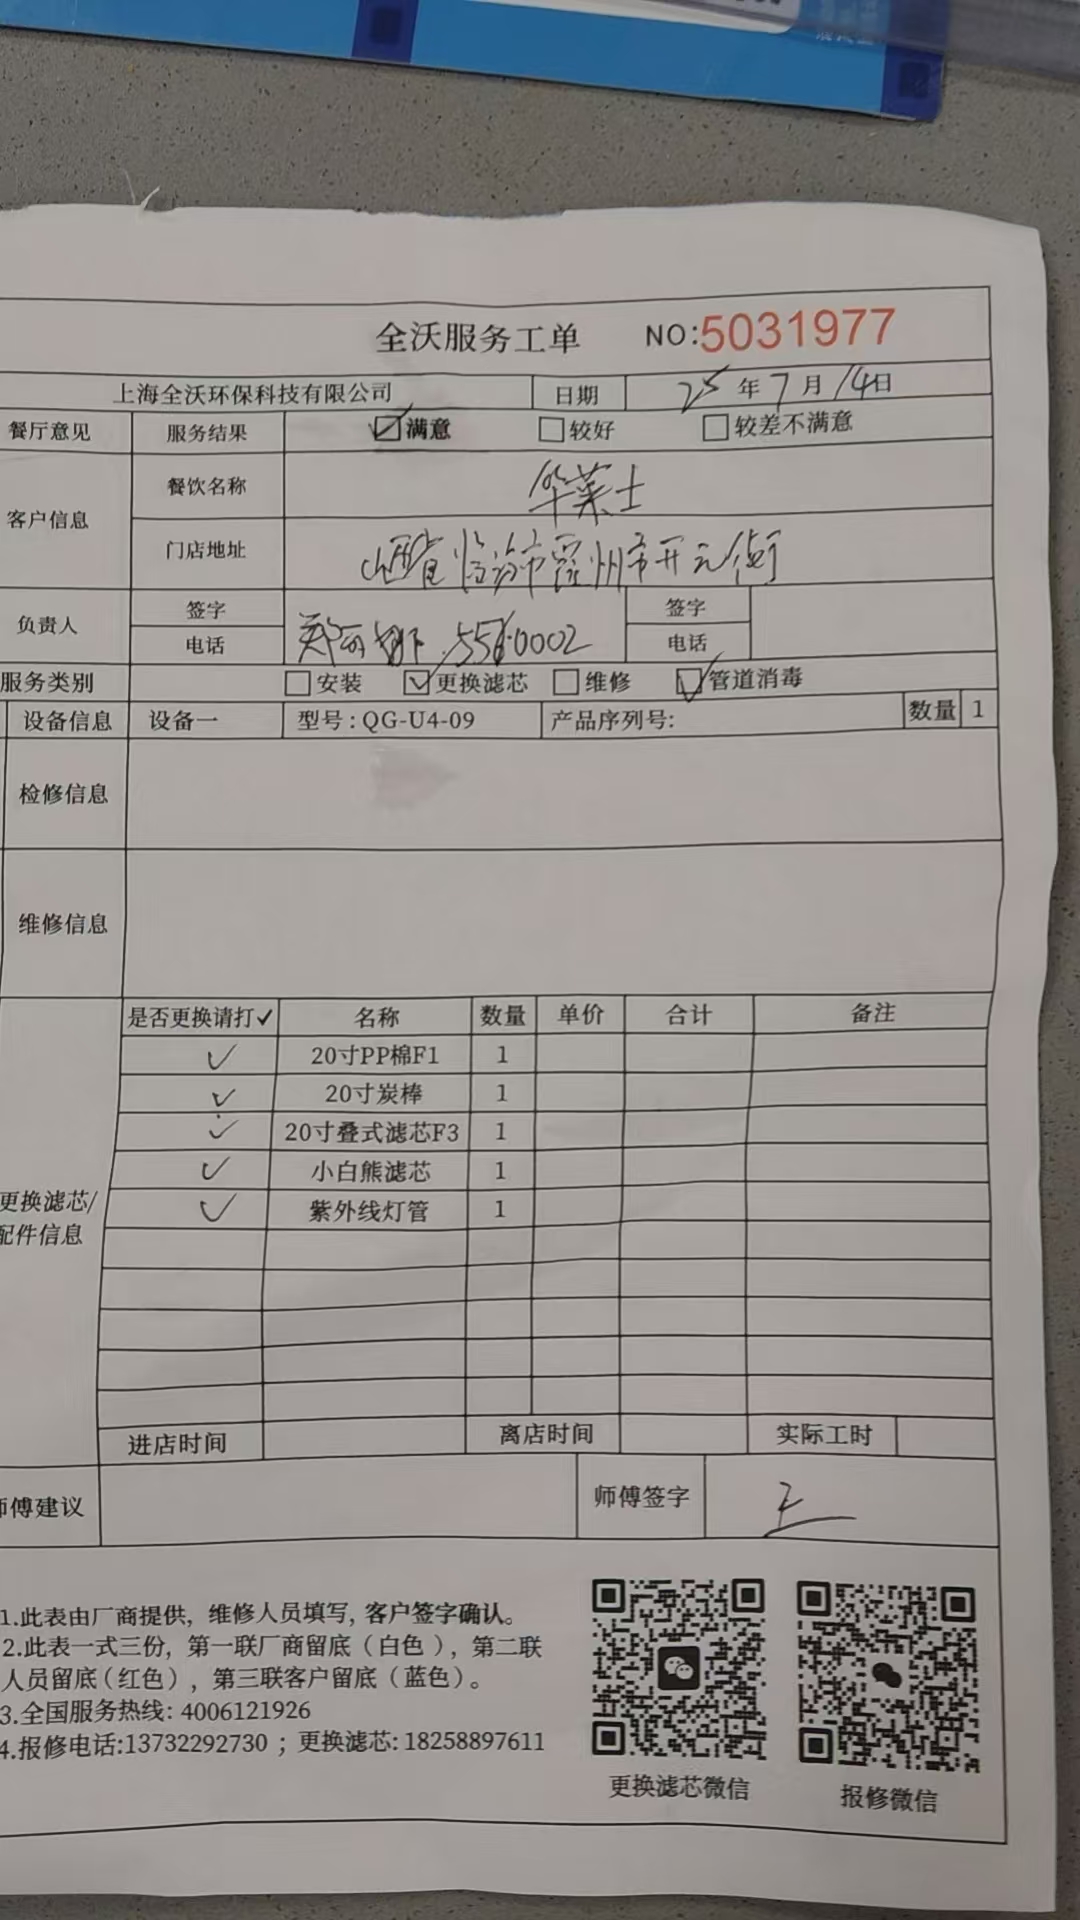 全沃服务工单 NO:5031977
上海全沃环保科技有限公司 日期 25年7月14日
餐厅意见 服务结果 满意 较好 较差不满意
客户信息 餐饮名称 华莱士
门店地址 山西省临汾市霍州市开元街
负责人 签字 签字
电话 5560002 电话
服务类别 安装 更换滤芯 维修 管道消毒
设备信息 设备一 型号:QG-U4-09 产品序列号: 数量 1
检修信息
维修信息
是否更换请打✓ 名称 数量 单价 合计 备注
✓ 20寸PP棉F1 1
✓ 20寸炭棒 1
✓ 20寸叠式滤芯F3 1
✓ 小白熊滤芯 1
✓ 紫外线灯管 1
更换滤芯/
配件信息
进店时间 离店时间 实际工时
师傅建议 师傅签字 王
1.此表由厂商提供，维修人员填写，客户签字确认。
2.此表一式三份，第一联厂商留底（白色），第二联
人员留底（红色），第三联客户留底（蓝色）。
3.全国服务热线: 4006121926
4.报修电话:13732292730 ；更换滤芯: 18258897611
更换滤芯微信 报修微信